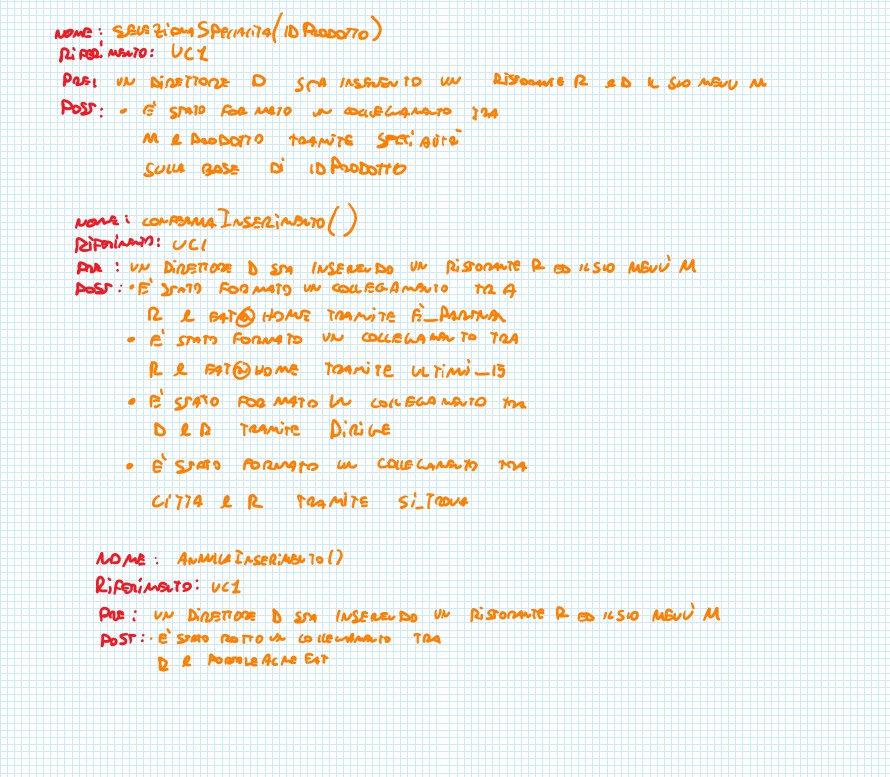 NOME: SELEZIONASPECIALITA(IDPRODOTTO)
RIFERIMENTO: UC1
PRE: UN DIRETTORE D STA INSERENDO UN RISTORANTE R ED IL SUO MENU M
POST: • È STATO FORMATO UN COLLEGAMENTO TRA
M e PRODOTTO TRAMITE
SULLA BASE DI IDPRODOTTO
NOME: CONFERMAINSERIMENTO()
RIFERIMENTO: UC1
PRE: UN DIRETTORE D STA INSERENDO UN RISTORANTE R ED IL SUO MENÙ M
POST: • È STATO FORMATO UN COLLEGAMENTO TRA
R e EAT@HOME TRAMITE
• È STATO FORMATO UN COLLEGAMENTO TRA
R e EAT@HOME TRAMITE ULTIMI_15
• È STATO FORMATO UN COLLEGAMENTO TRA
D e R TRAMITE DIRIGE
• È STATO FORMATO UN COLLEGAMENTO TRA
CITTA e R TRAMITE SI_TROVA
NOME: ANNULLAINSERIMENTO()
RIFERIMENTO: UC1
PRE: UN DIRETTORE D STA INSERENDO UN RISTORANTE R ED IL SUO MENÙ M
POST: • È STATO ROTTO UN COLLEGAMENTO TRA
R e EAT